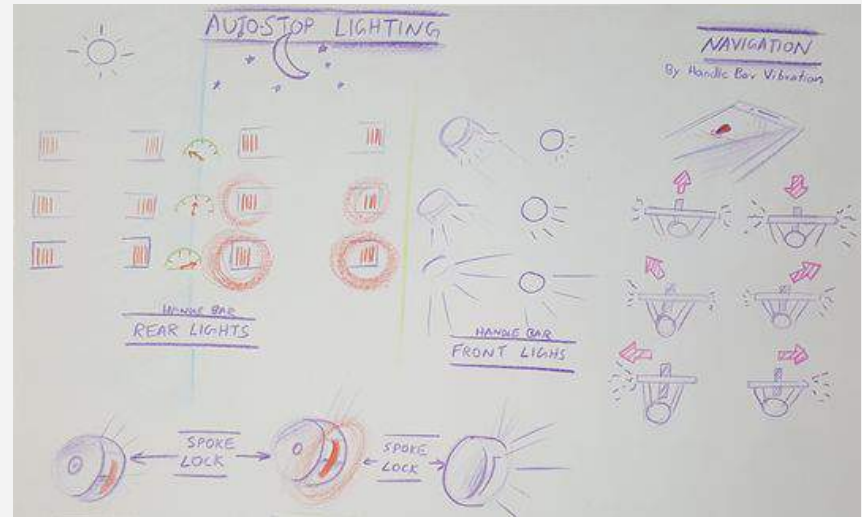 AUTO-STOP LIGHTING
NAVIGATION
By Handle Bar Vibration
HANDLE BAR
REAR LIGHTS
HANDLE BAR
FRONT LIGHS
SPOKE
LOCK
SPOKE
LOCK